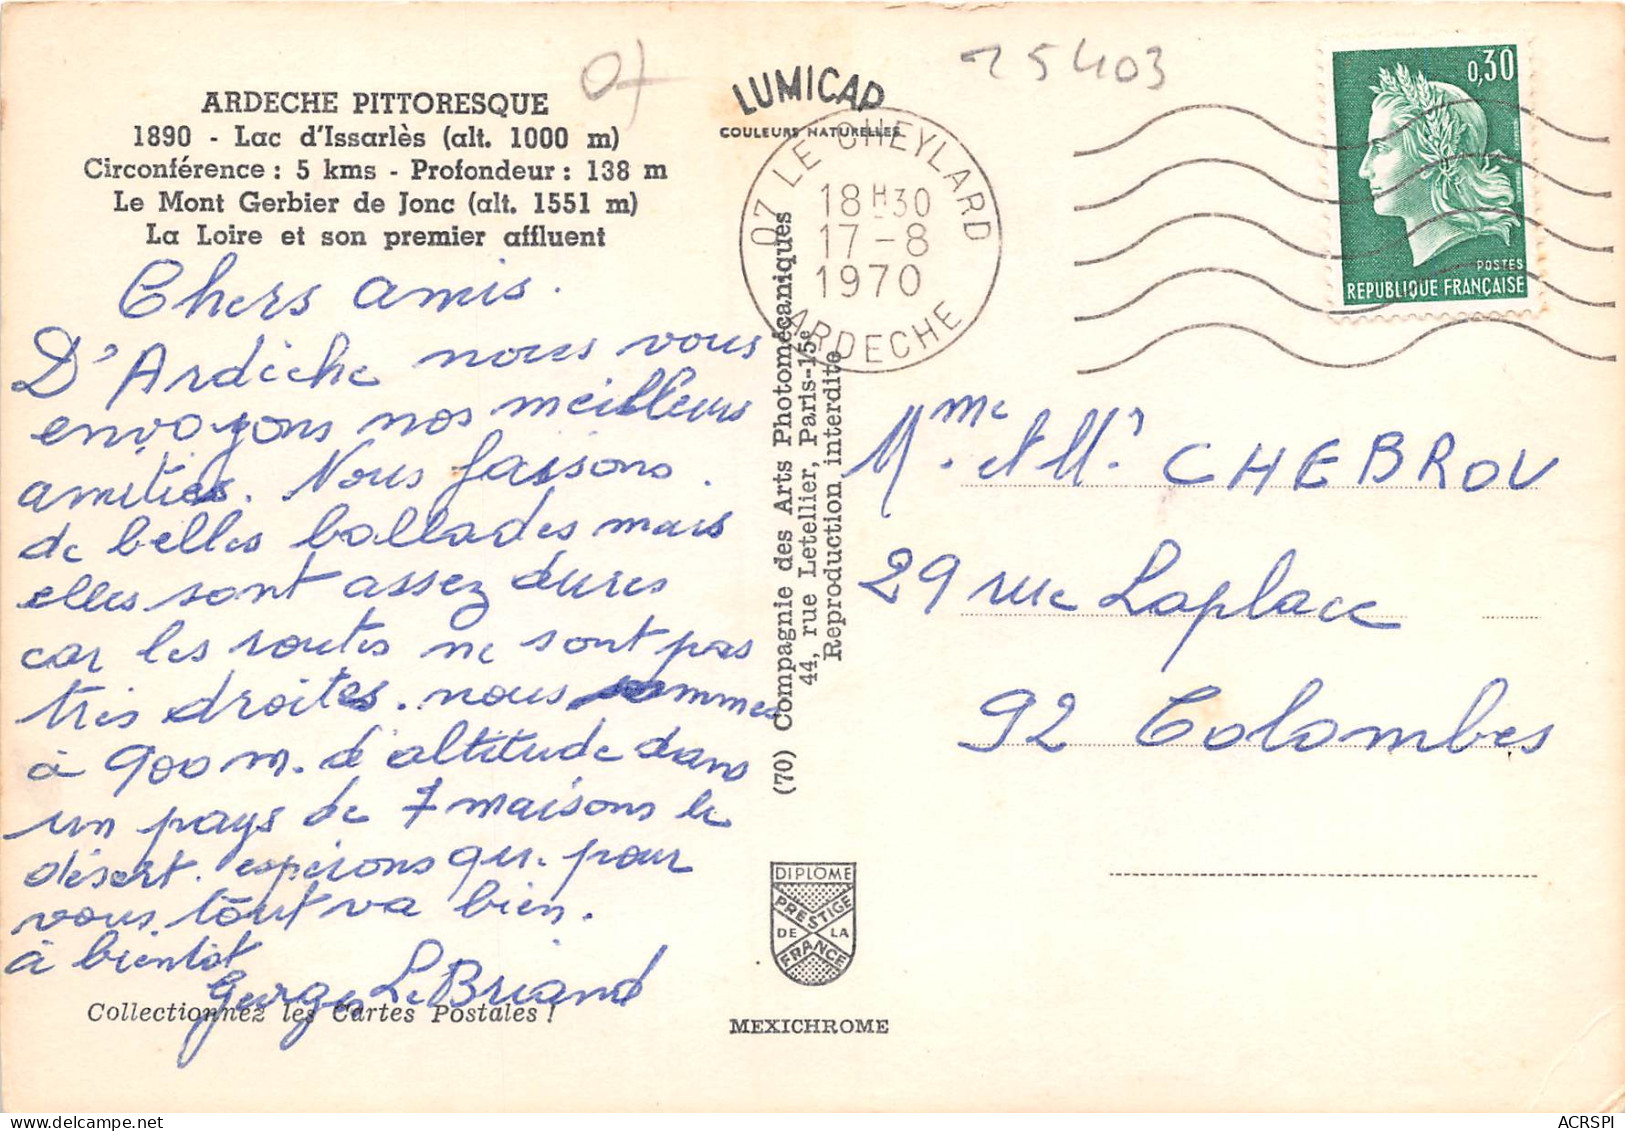 07
25403
ARDECHE PITTORESQUE
1890 - Lac d'Issarlès (alt. 1000 m)
Circonférence : 5 kms - Profondeur : 138 m
Le Mont Gerbier de Jonc (alt. 1551 m)
La Loire et son premier affluent
LUMICAP
COULEURS NATURELLES
07 LE CHEYLARD
18H30
17-8
1970
ARDECHE
0,30
POSTES
REPUBLIQUE FRANÇAISE
Chers amis.
D'Ardèche nous vous
envoyons nos meilleurs
amitiés. Nous faisons
de belles ballades mais
elles sont assez dures
car les routes ne sont pas
très droites. nous sommes
à 900 m. d'altitude dans
un pays de 7 maisons le
désert. espérons que pour
vous tout va bien.
à bientôt
Georges Le Briand
Collectionnez les Cartes Postales !
(70) Compagnie des Arts Photomécaniques
44, rue Letellier, Paris-15e
Reproduction interdite
DIPLOME
PRESTIGE
DE LA
FRANCE
MEXICHROME
Mme et Mr CHEBROU
29 rue Laplace
92 Colombes
ACRSPI